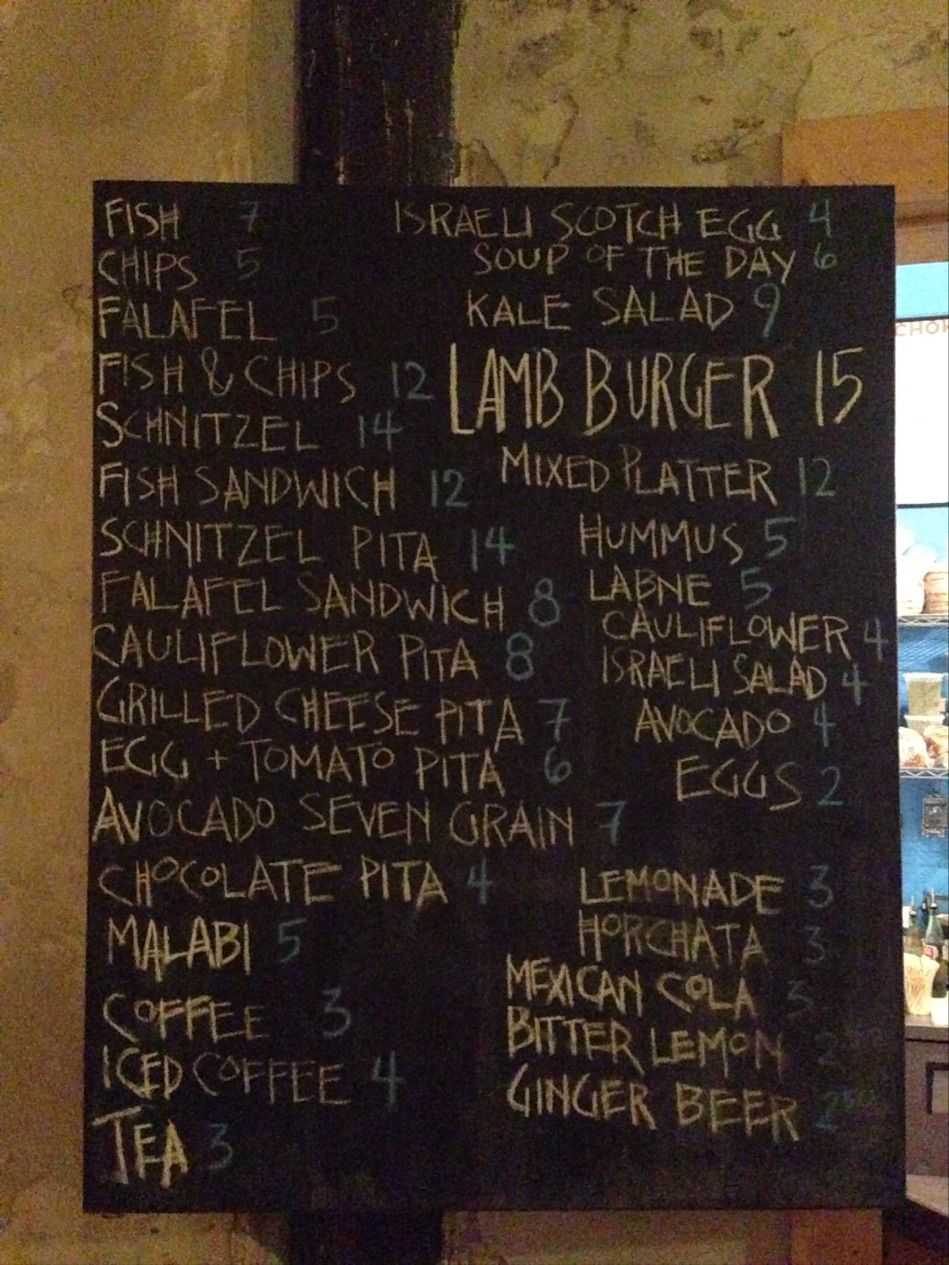 FISH 7
CHIPS 5
FALAFEL 5
FISH & CHIPS 12
SCHNITZEL 14
FISH SANDWICH 12
SCHNITZEL PITA 14
FALAFEL SANDWICH 8
CAULIFLOWER PITA 8
GRILLED CHEESE PITA 7
EGG + TOMATO PITA 6
AVOCADO SEVEN GRAIN 7
CHOCOLATE PITA 4
MALABI 5
COFFEE 3
ICED COFFEE 4
TEA 3
ISRAELI SCOTCH EGG 4
SOUP OF THE DAY 6
KALE SALAD 9
LAMB BURGER 15
MIXED PLATTER 12
HUMMUS 5
LABNE 5
CAULIFLOWER 4
ISRAELI SALAD 4
AVOCADO 4
EGGS 2
LEMONADE 3
HORCHATA 3
MEXICAN COLA 3
BITTER LEMON 250
GINGER BEER 250